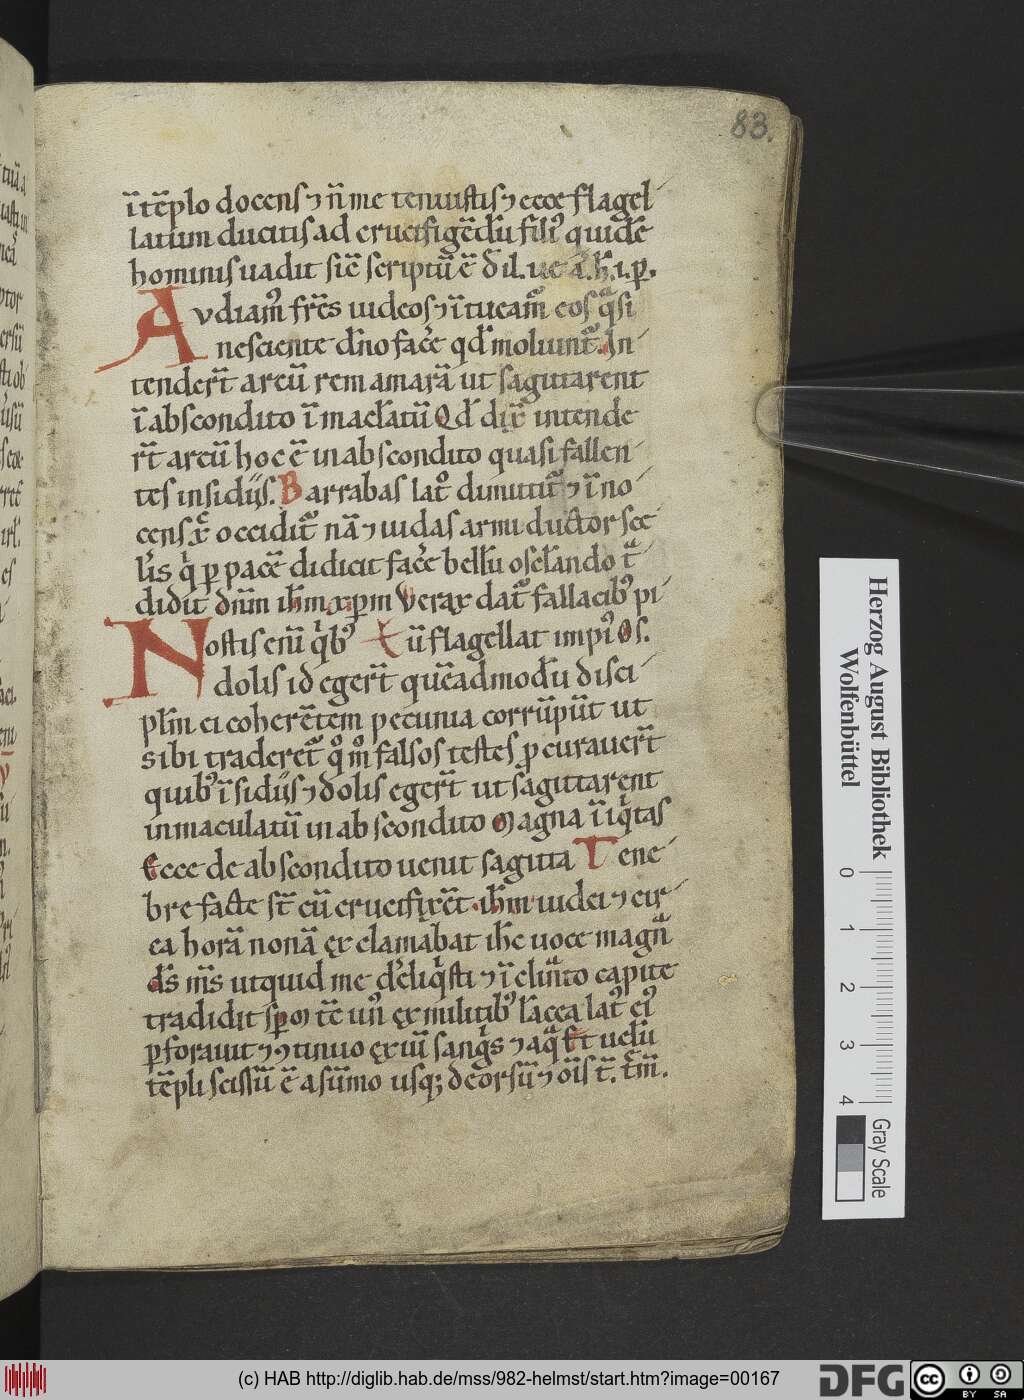 83.
ī tēplo docens ⁊ n̄ me tenuistis ⁊ ecce flagel
latum ducitis ad crucifigēdū filiꝰ quidē
hominis uadit sic̄ scriptū ē
Avdiamꝰ fr̄es iudeos ⁊ ītueam̄ eos q̄si
nesciente dn̄o fac̄e qd̄ moliunt̄ In
tender̄t arcū rem amarā ut sagittarent
ī abscondito īmac̄latū Qd̄ dix̄ intende
r̄t arcū hoc ē in abscondito quasi fallen
tes insidiis. Barrabas latꝰ dimittit̄ ⁊ īno
cens xp̄c occidit̄ nā ⁊ iudas armiductor sce
lꝰis q̄ p pacē didicit fac̄e bellū osc̄lando t̄
didit dn̄m ih̄m xp̄m Verax dat̄ fallacibꝰ pi
Nostis enī q̄ibꝰ ū flagellat impiꝰ Os.
dolis id eger̄t quēadmodū disci
pl̄m ei coherētem pecunia corrūpūt ut
sibi traderet̄ qͦmͦ falsos testes pcurauer̄t
quibꝰ īsidiis ⁊ dolis eger̄t ut sagittarent
inmaculatū in abscondito Magna īiq̄tas
Ecce de abscondito uenit sagitta Tene
bre facte st̄ cū crucifixēt ih̄m iudei ⁊ cir
ca horā nonā exclamabat ih̄c uoce magn̄
d̄s m̄s utquid me dꝰeliq̄sti ⁊ īclin̄to capite
tradidit sp̄m Tc̄ unꝰ ex militibꝰ lācea latꝰ eiꝰ
pforauit ⁊ ꝯtinuo exiuī sanḡs ⁊ aq̄ Et uelū
tēpli scissū ē a sūmo usq; deorsū ⁊ oīs t̄. t̄m̄.
Herzog August Bibliothek
Wolfenbüttel
0 1 2 3 4
Gray Scale
(c) HAB http://diglib.hab.de/mss/982-helmst/start.htm?image=00167
DFG
cc BY SA